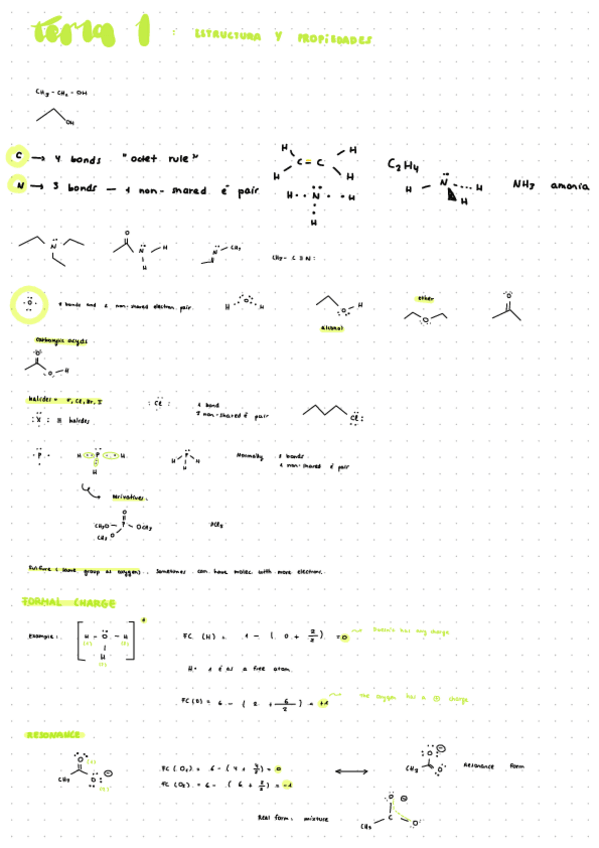 Tema 1 : ESTRUCTURA Y PROPIEDADES
CH3 - CH2 - OH
OH
C → 4 bonds "octet rule"
H H C = C H H
N → 3 bonds — 1 non-shared e⁻ pair
H N H H
C2H4
H N H H
NH3 amonia
N
O N H H
N CH3
CH3 - C ≡ N:
O
2 bonds and 2 non-shared electron pair.
H O H
O H
alcohol
ether
O
O
carboxylic acyds
O O H
halides = F, Cl, Br, I
: X : ≡ halides
: Cl :
1 bond
3 non-shared e⁻ pair
Cl:
P
H P H H
H P H H
Normally 3 bonds
1 non-shared e⁻ pair
derivatives:
O
CH3O P OCH3
CH3O
Sulfure (same group as oxygen). Sometimes can have molec with more electrons.
FORMAL CHARGE
Example:
H - O - H
H
FC (H) = 1 - ( 0 + 2/2 ) = 0
H= 1 e⁻ as a free atom.
FC (O) = 6 - ( 2 + 6/2 ) = +1
the oxygen has a ⊕ charge
RESONANCE
O
CH3 O ⊖
FC (O1) = 6 - ( 4 + 4/2 ) = 0
FC (O2) = 6 - ( 6 + 2/2 ) = -1
O ⊖
CH3 O
Resonance form
Real form: mixture
O ⊖
C
CH3 O